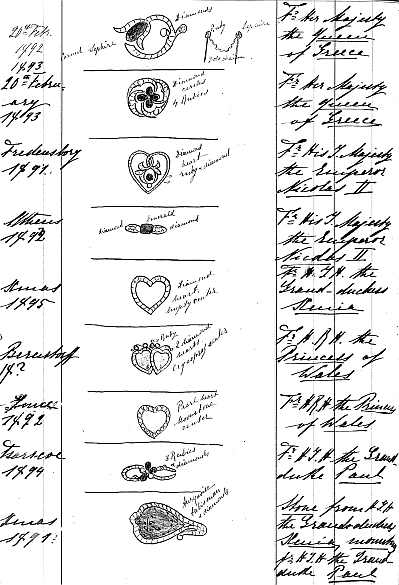 20th Feb.
1892
1893
Diamonds
Ruby
Sapphire
gold chain
Fr Her Majesty
the Queen
of Greece
20th Febru-
ary
1893
Diamond
circles
4 Rubies
Fr Her Majesty
the Queen
of Greece
Fredensborg
1891.
Diamond
heart
ruby + diamond
Fr His I. Majesty
the Emperor
Nicolas II
Athens
1892
diamond
Emerald
diamond
Fr His I. Majesty
the Emperor
Nicolas II
Xmas
1895
Diamond
heart
empty center
Fr H. I. H. the
Grand-duchess
Xenia
Bernstorff
18?
Ruby
2 diamond
hearts
center
Fr H. R. H. the
Princess of
Wales
1892
Pearl heart
center
Fr H R H the Princess
of Wales
1894
3 Rubies
diamonds
Fr H. I. H the Grand-
duke Paul
Xmas
1891?
turquoise
diamonds
Stone from H I H
the Grand-duchess
Xenia, mounting
fr H. I. H the Grand-
duke Paul